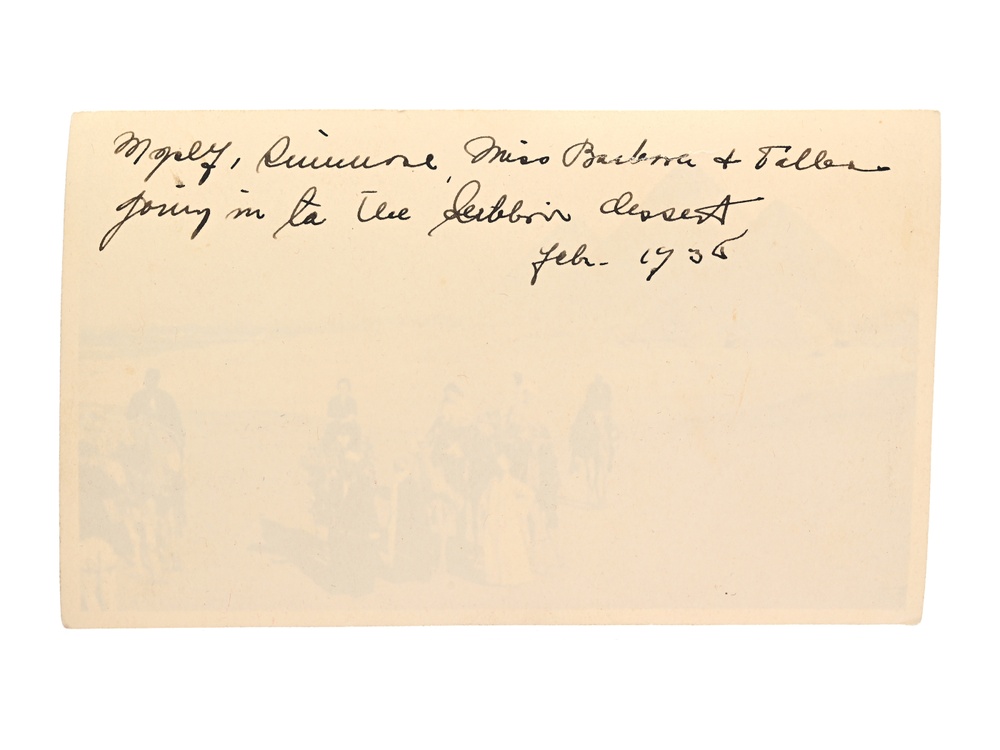 Myself, Simmone, Miss Barbara & Taller
going in to the Libbian dessert
Feb. 1935